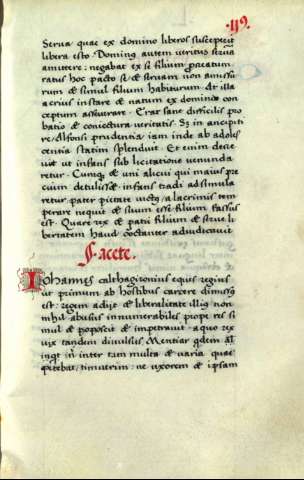 119.
Serua quae ex domino liberos susceperit
libera esto. Dominus autem ueritus seruā
amittere: negabat ex se filium procreatum
ratus hoc pacto se & seruam non amissu
rum & simul filium habiturum. At illa
acrius instare & natum ex domino con
ceptum asseuerare. Erat sane difficilis pro
batio & coniectura ueritatis. Sȝ in ancipiti
re, Alfonsi prudentia iam inde ab adoles
centia statim splenduit. Et enim decre
uit ut infans sub licitatione uenunda
retur. Cumq; & uni alicui qui maius pre
cium detulisset infans tradi adsimula
retur pater pietate uictus, a lacrimis tem
perare nequit & suum esse filium fassus
est. Quare rex & patri filium & seruae li
bertatem haud cunctanter adiudicauit
Facete.
Iohannes calthagironius eques regius
ut primum ab hostibus carcere dimissus
est: regem adijt & liberalitate illius non
nihil abusus innumerabiles prope res si
mul & poposcit & impetrauit. a quo rex
uix tandem diuulsus. Mentiar quidem
inqt ni inter tam multa & uaria quae
petebat, timuerim: ne uxorem & ipsam